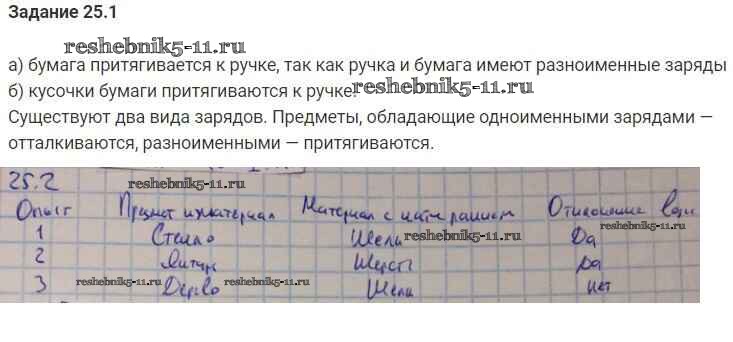 Задание 25.1
reshebnik5-11.ru
а) бумага притягивается к ручке, так как ручка и бумага имеют разноименные заряды
б) кусочки бумаги притягиваются к ручке. reshebnik5-11.ru
Существуют два вида зарядов. Предметы, обладающие одноименными зарядами —
отталкиваются, разноименными — притягиваются.
25.2 reshebnik5-11.ru
Опыт Предмет и материал Материал с Отклонение
1 Стекло Шелк reshebnik5-11.ru Да
2 Янтарь Шерсть Да
3 reshebnik5-11.ru Дерево reshebnik5-11.ru Шелк нет